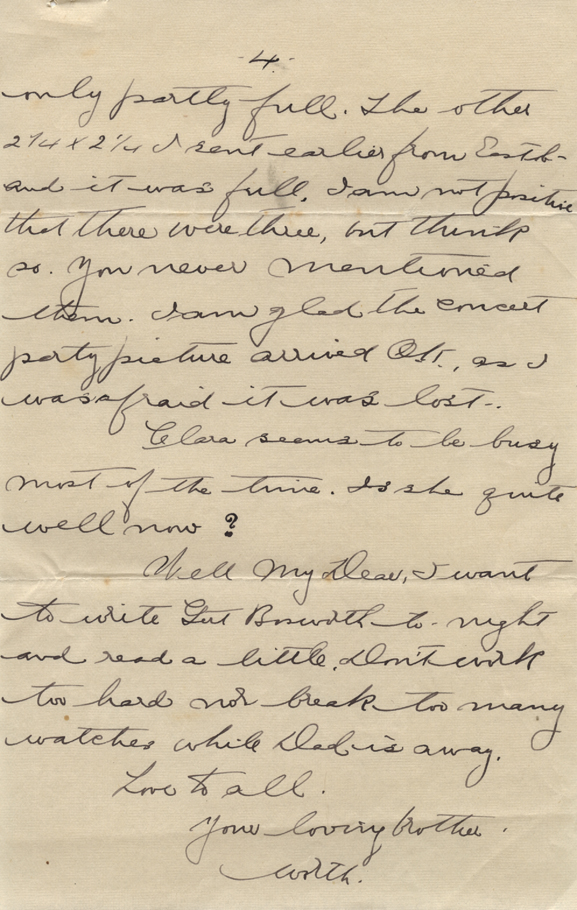 4.
only partly full. The other
2 1/4 x 2 1/4 I sent earlier from Eastb-
and it was full. I am not positive
that there were three, but think
so. You never mentioned
them. I am glad the concert
party picture arrived O.K., as I
was afraid it was lost.
Clara seems to be busy
most of the time. Is she quite
well now?
Well My Dear, I want
to write Gert Bosworth to-night
and read a little. Don't work
too hard nor break too many
watches while Dad is away.
Love to all.
Your loving brother.
Worth.